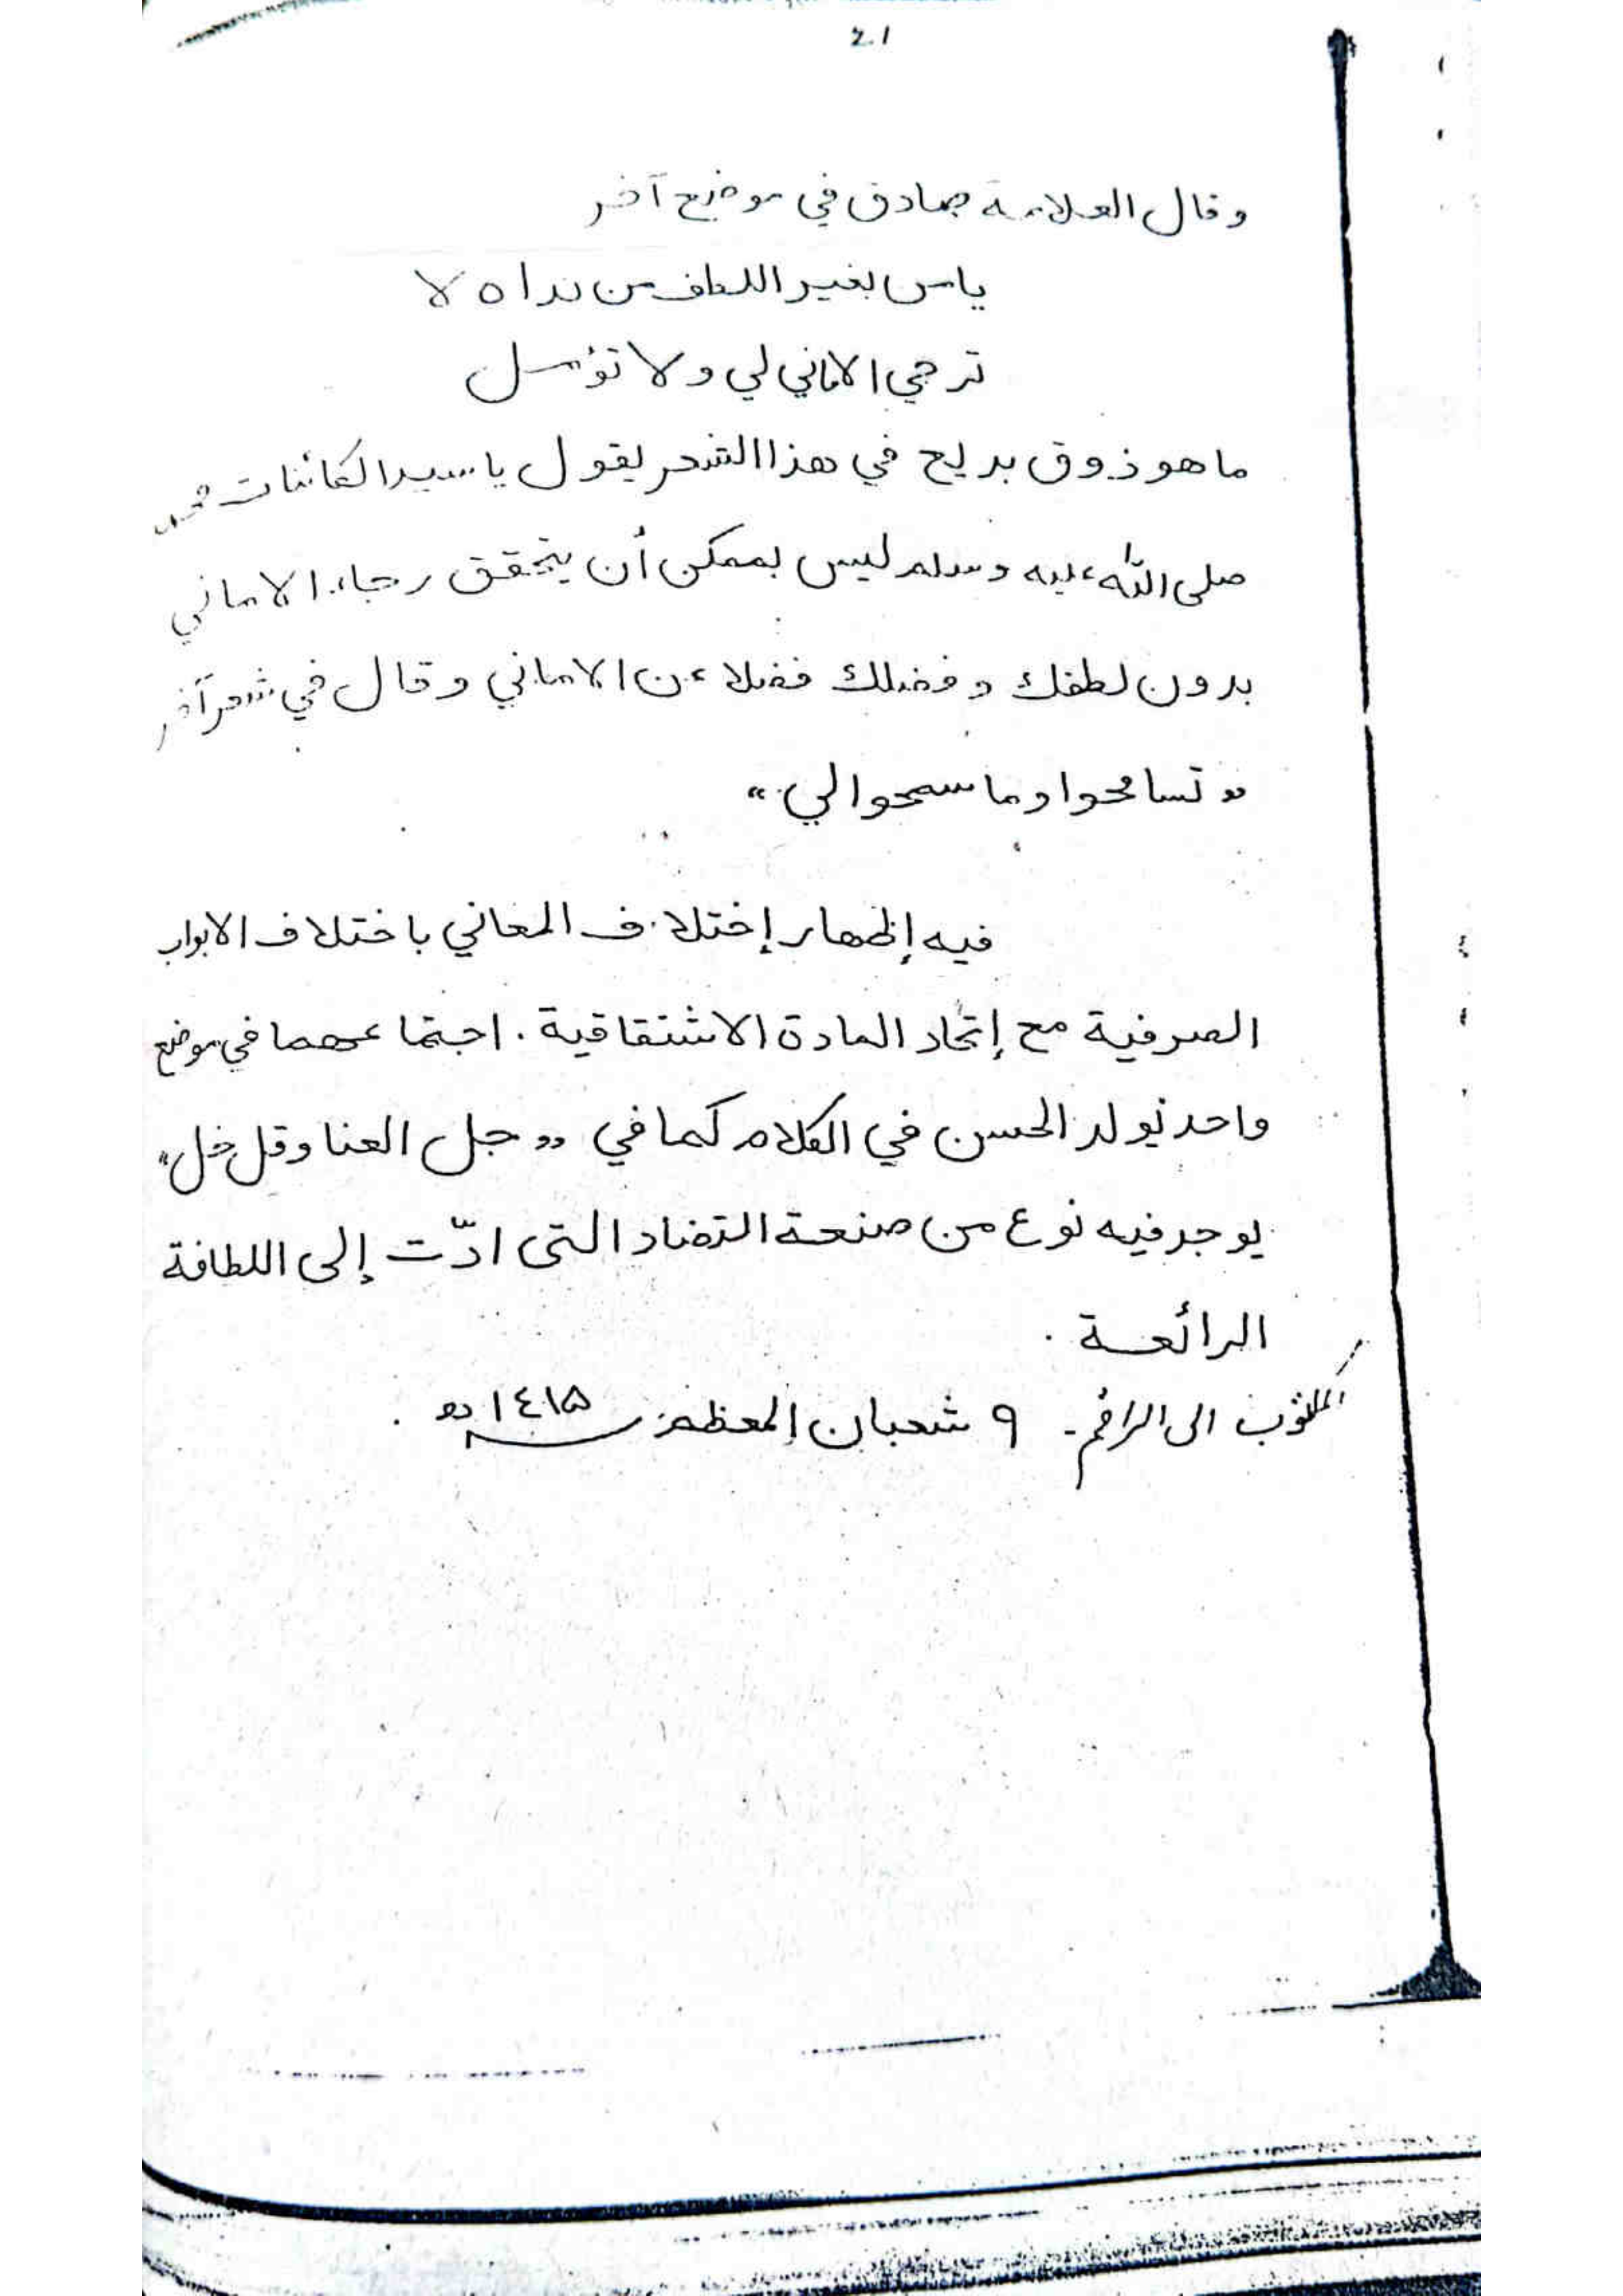 ٤٠١
وقال العلامة صادق في موضع آخر
يا من بغير اللطف من نداه لا
ترجي الاماني لي ولا تؤمل
ما هو ذوق بديع في هذا الشعر يقول يا سيد الكائنات محمد
صلى الله عليه وسلم ليس بممكن أن يتحقق رجاء الاماني
بدون لطفك وفضلك فضلا عن الاماني وقال في شعر آخر
"تسامحوا وما سمحوا لي"
فيه إظهار إختلاف المعاني باختلاف الابواب
الصرفية مع إتحاد المادة الاشتقاقية. اجتماعهما في موضع
واحد يولد الحسن في الكلام كما في "جل العنا وقل خل"
يوجد فيه نوع من صنعة التضاد التى ادّت إلى اللطافة
الرائعة.
المكتوب الى الراقم- ٩ شعبان المعظم ١٤١٥ھ.